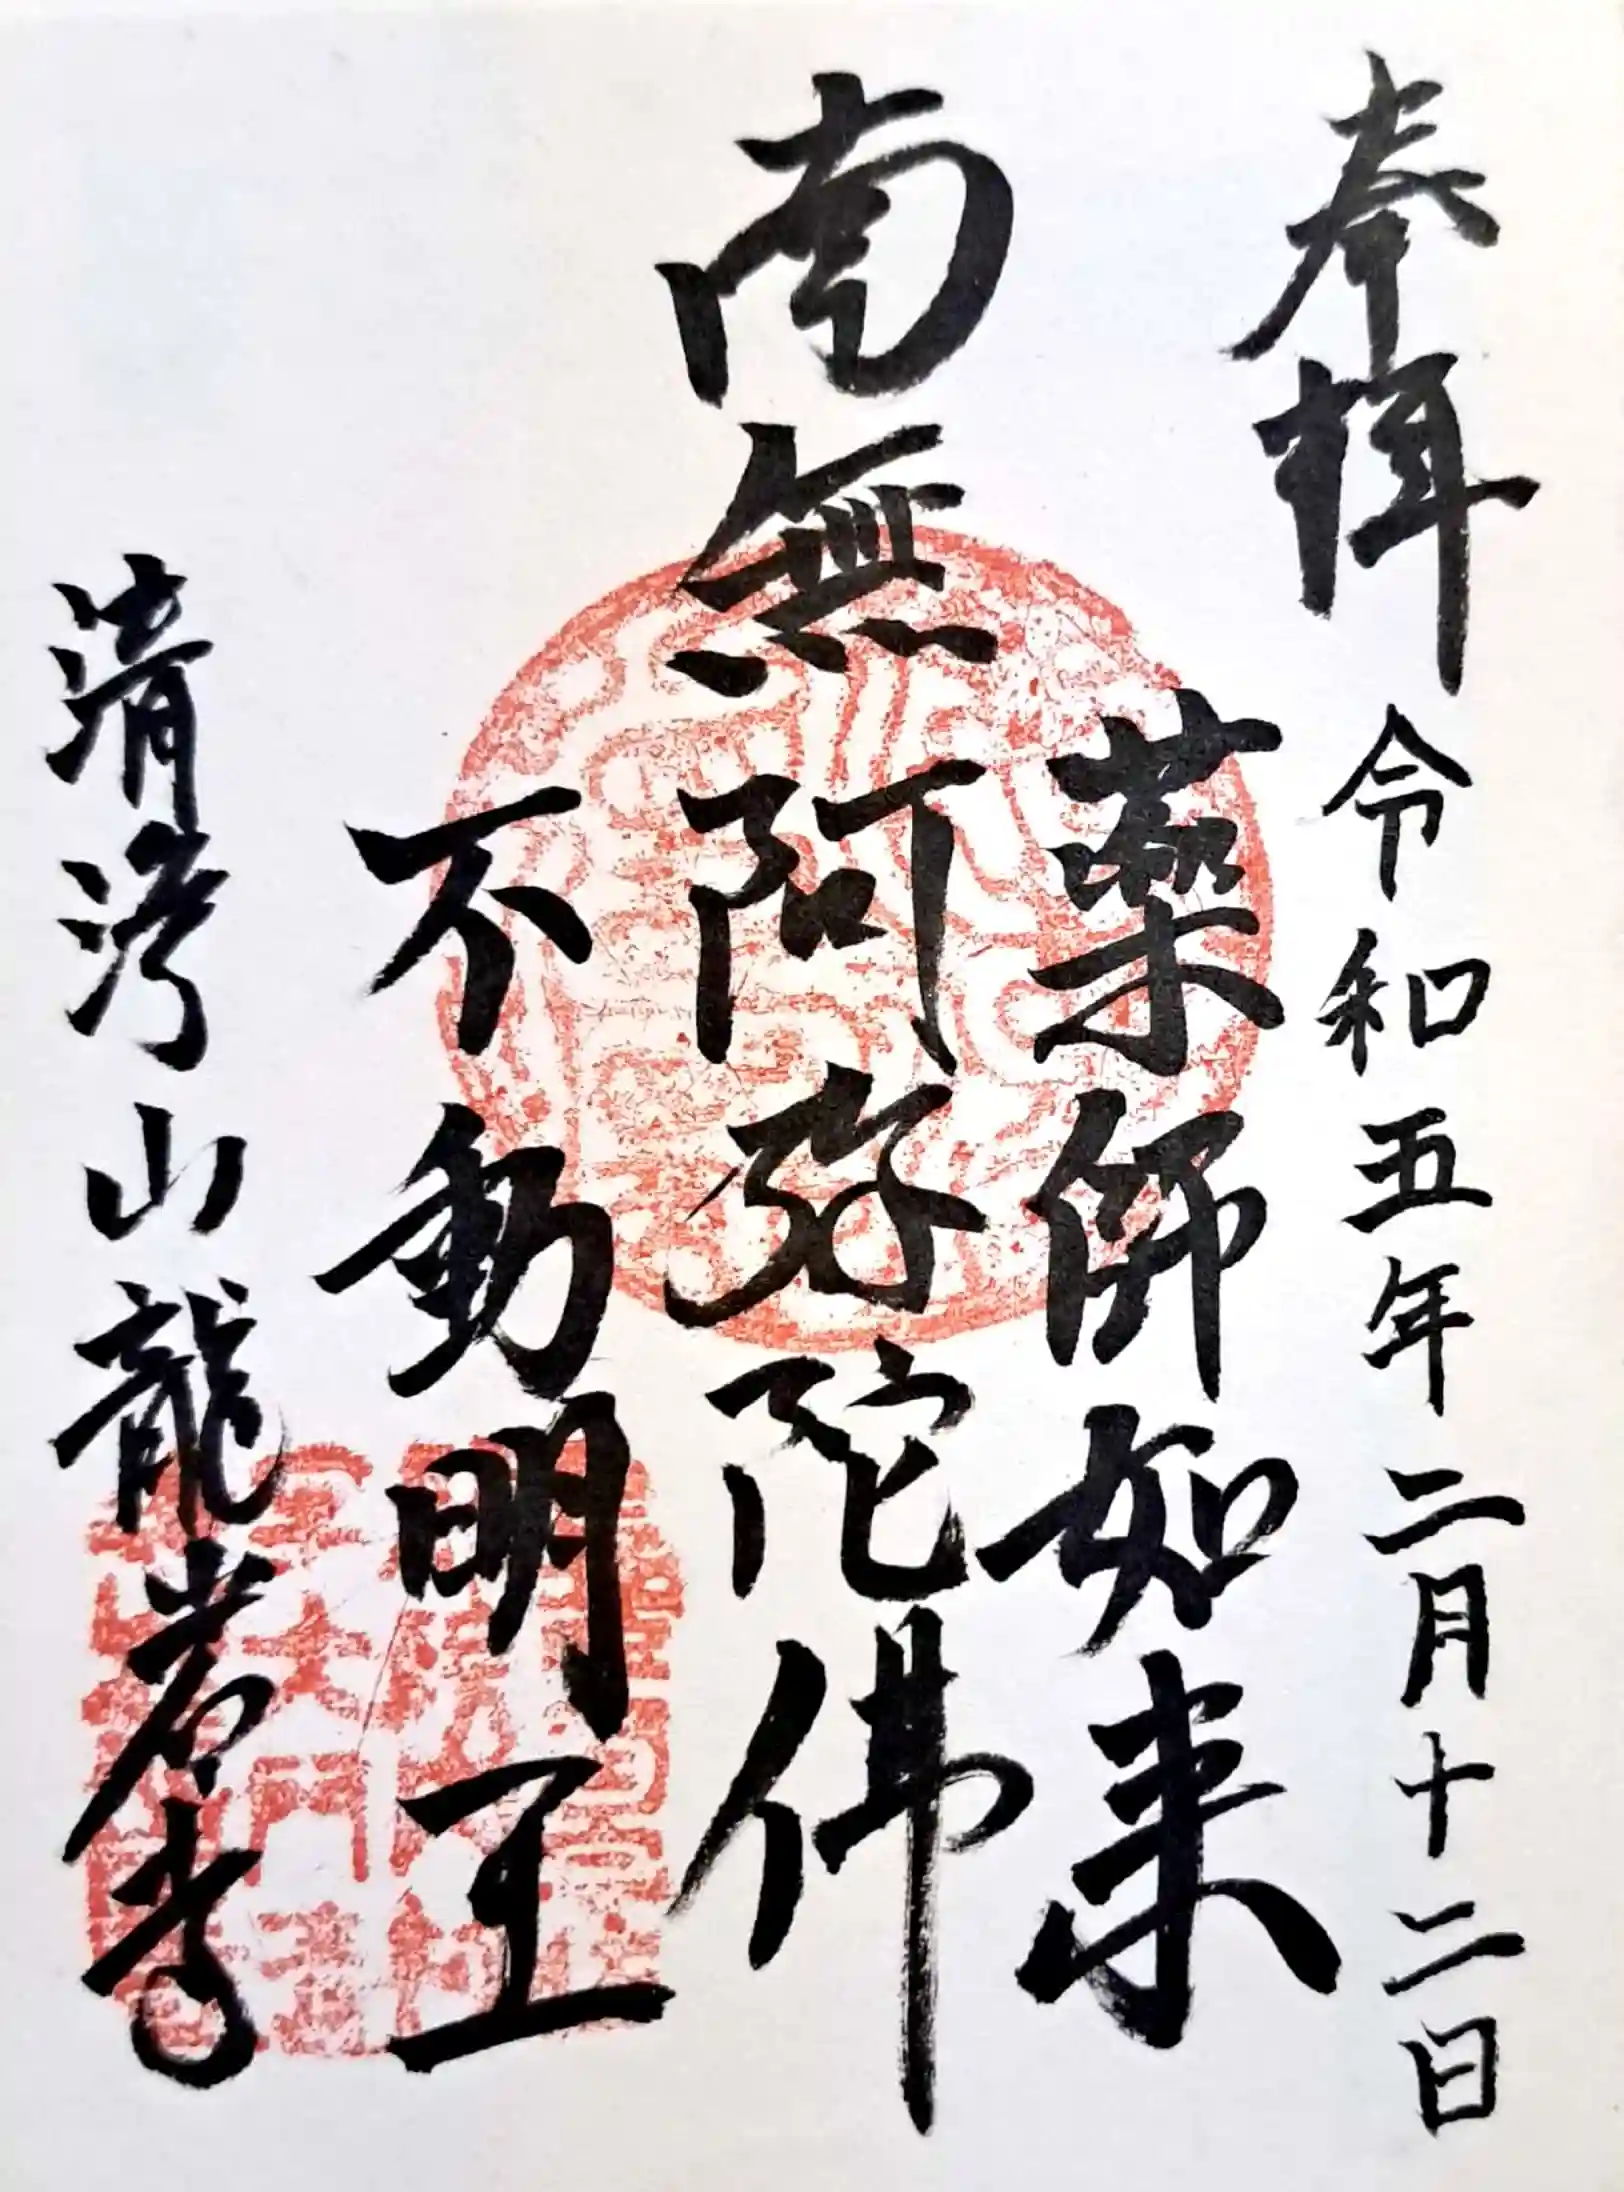 奉拝 令和五年二月十二日
薬師如来
南無阿弥陀佛
不動明王
清涝山龍岩寺